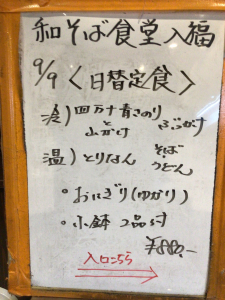 和そば食堂入福
9/9 〈日替定食〉
冷) 四万十青さのり
と
山かけ ぶっかけ
温) とりなん そば
うどん
・おにぎり(ゆかり)
・小鉢 2品付
¥880.-
入口こちら